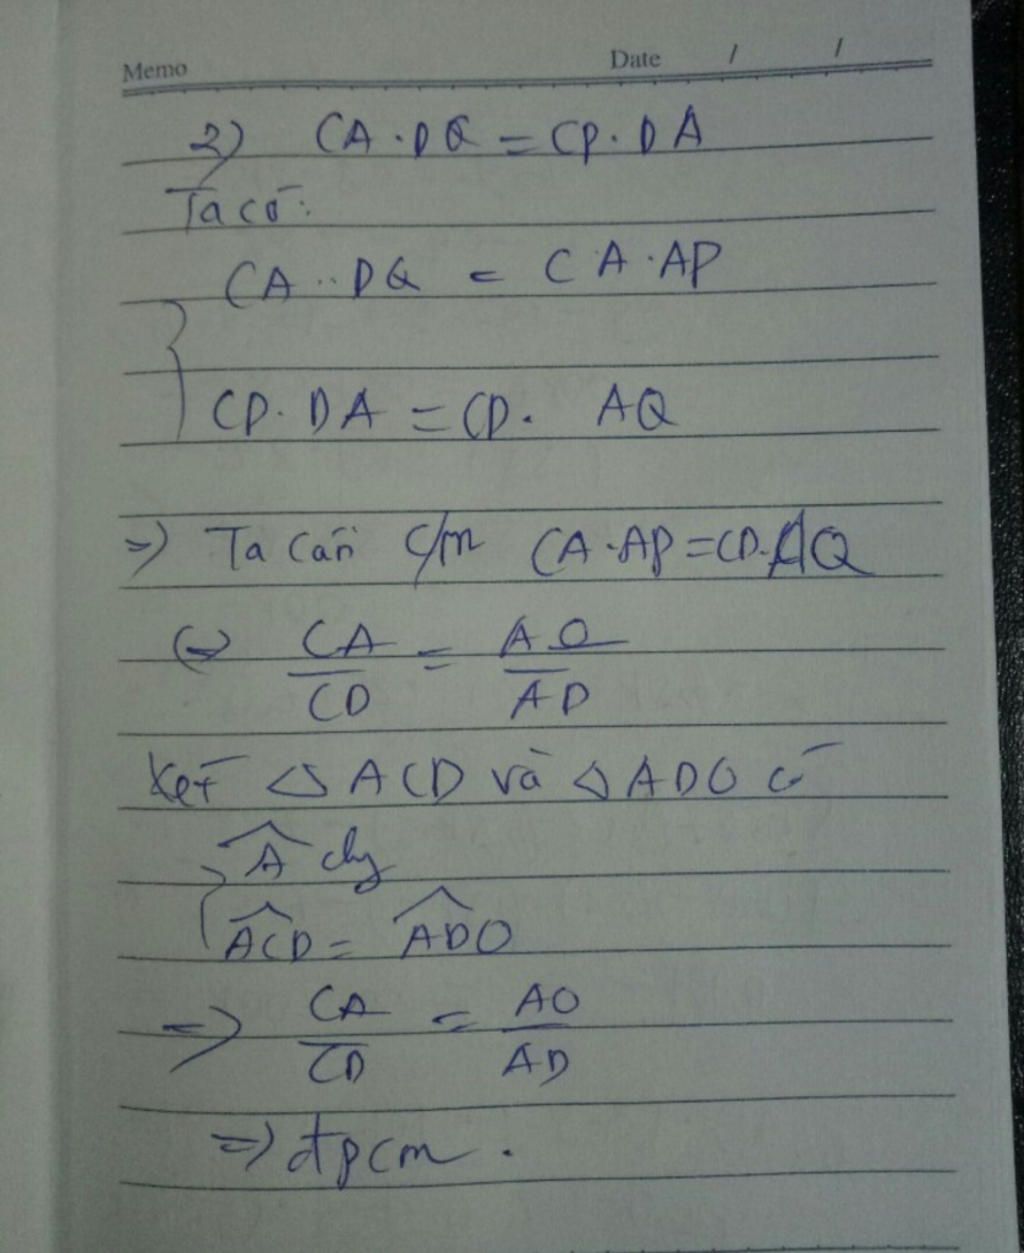 Memo Date / /
2) CA.DQ = CP.DA
Ta có:
CA..DQ = CA.AP
CP.DA = CP. AQ
=> Ta cần c/m CA.AP=CP.AQ
<=> CA/CD = AO/AD
Xét △ACD và △ADO có
Â chg
ACD = ADO
=> CA/CD = AO/AD
=> đpcm.